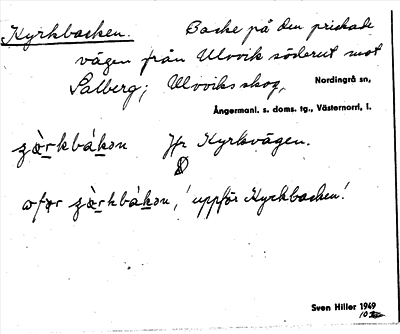 Kyrkbacken. Backe på den prickade
vägen från Ulvvik söderut mot
Salberg; Ulvviks skog, Nordingrå sn,
Ångermanl. s. doms. tg., Västernorrl. l.
Jfr Kyrkvägen.
uppför Kyrkbacken!
Sven Hiller 1949